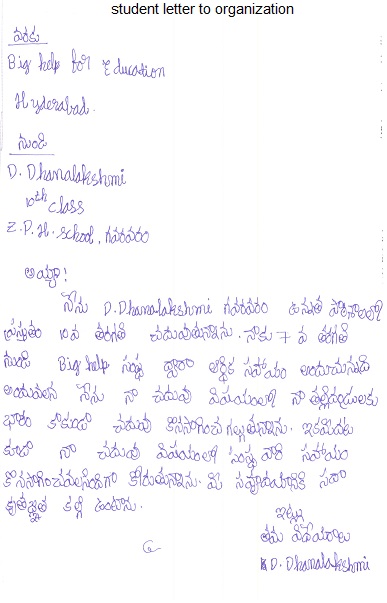 student letter to organization
వరకు
Big help for Education
Hyderabad.
నుండి
D. Dhanalakshmi
10th class
Z.P.H. School, గవరవరం
అయ్యా!
నేను D.Dhanalakshmi గవరవరం ఉన్నత పాఠశాలలో
ప్రస్తుతం 10వ తరగతి చదువుతున్నాను. నాకు 7 వ తరగతి
నుండి Big help సంస్థ ద్వారా ఆర్థిక సహాయం అందుచున్నది
అందువలన నేను నా చదువు విషయంలో నా తల్లిదండ్రులకు
భారం కాకుండా చదువు కొనసాగించ గల్గుతున్నాను. ఇకమీదట
కూడా నా చదువు విషయంలో సంస్థ వారి సహాయం
కొనసాగించవలసిందిగా కోరుతున్నాను. మీ సహృదయానికి సదా
కృతజ్ఞత కల్గి ఉంటాను.
ఇట్లు
తమ విధేయురాలు
D. Dhanalakshmi